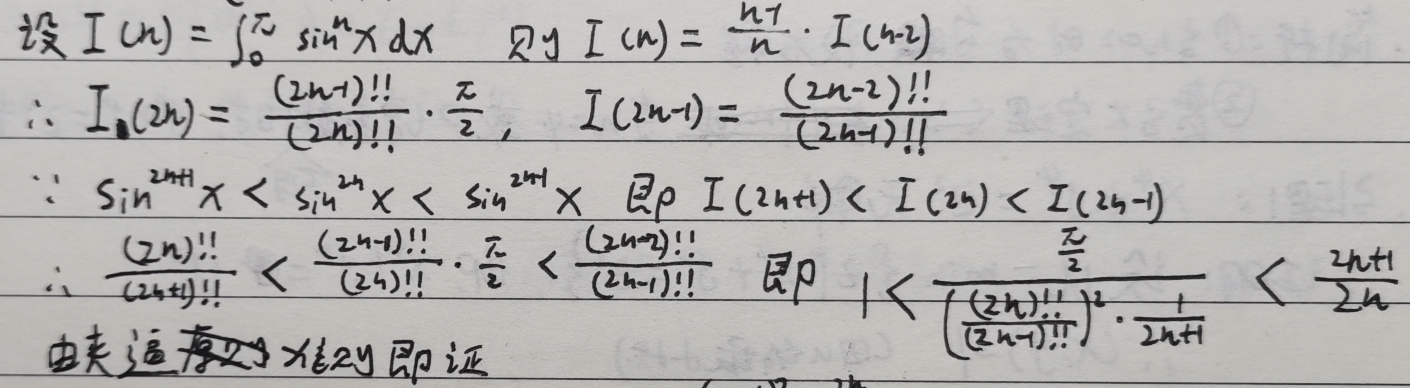 设 I(n) = ∫₀^π sinⁿx dx 则 I(n) = (n-1)/n · I(n-2)
∴ I(2n) = (2n-1)!!/(2n)!! · π/2, I(2n-1) = (2n-2)!!/(2n-1)!!
∵ sin²ⁿ⁺¹x < sin²ⁿx < sin²ⁿ⁻¹x 即 I(2n+1) < I(2n) < I(2n-1)
∴ (2n)!!/(2n+1)!! < (2n-1)!!/(2n)!! · π/2 < (2n-2)!!/(2n-1)!! 即 1 < (π/2)/(((2n)!!/(2n-1)!!)² · 1/(2n+1)) < (2n+1)/2n
由夹逼准则即证